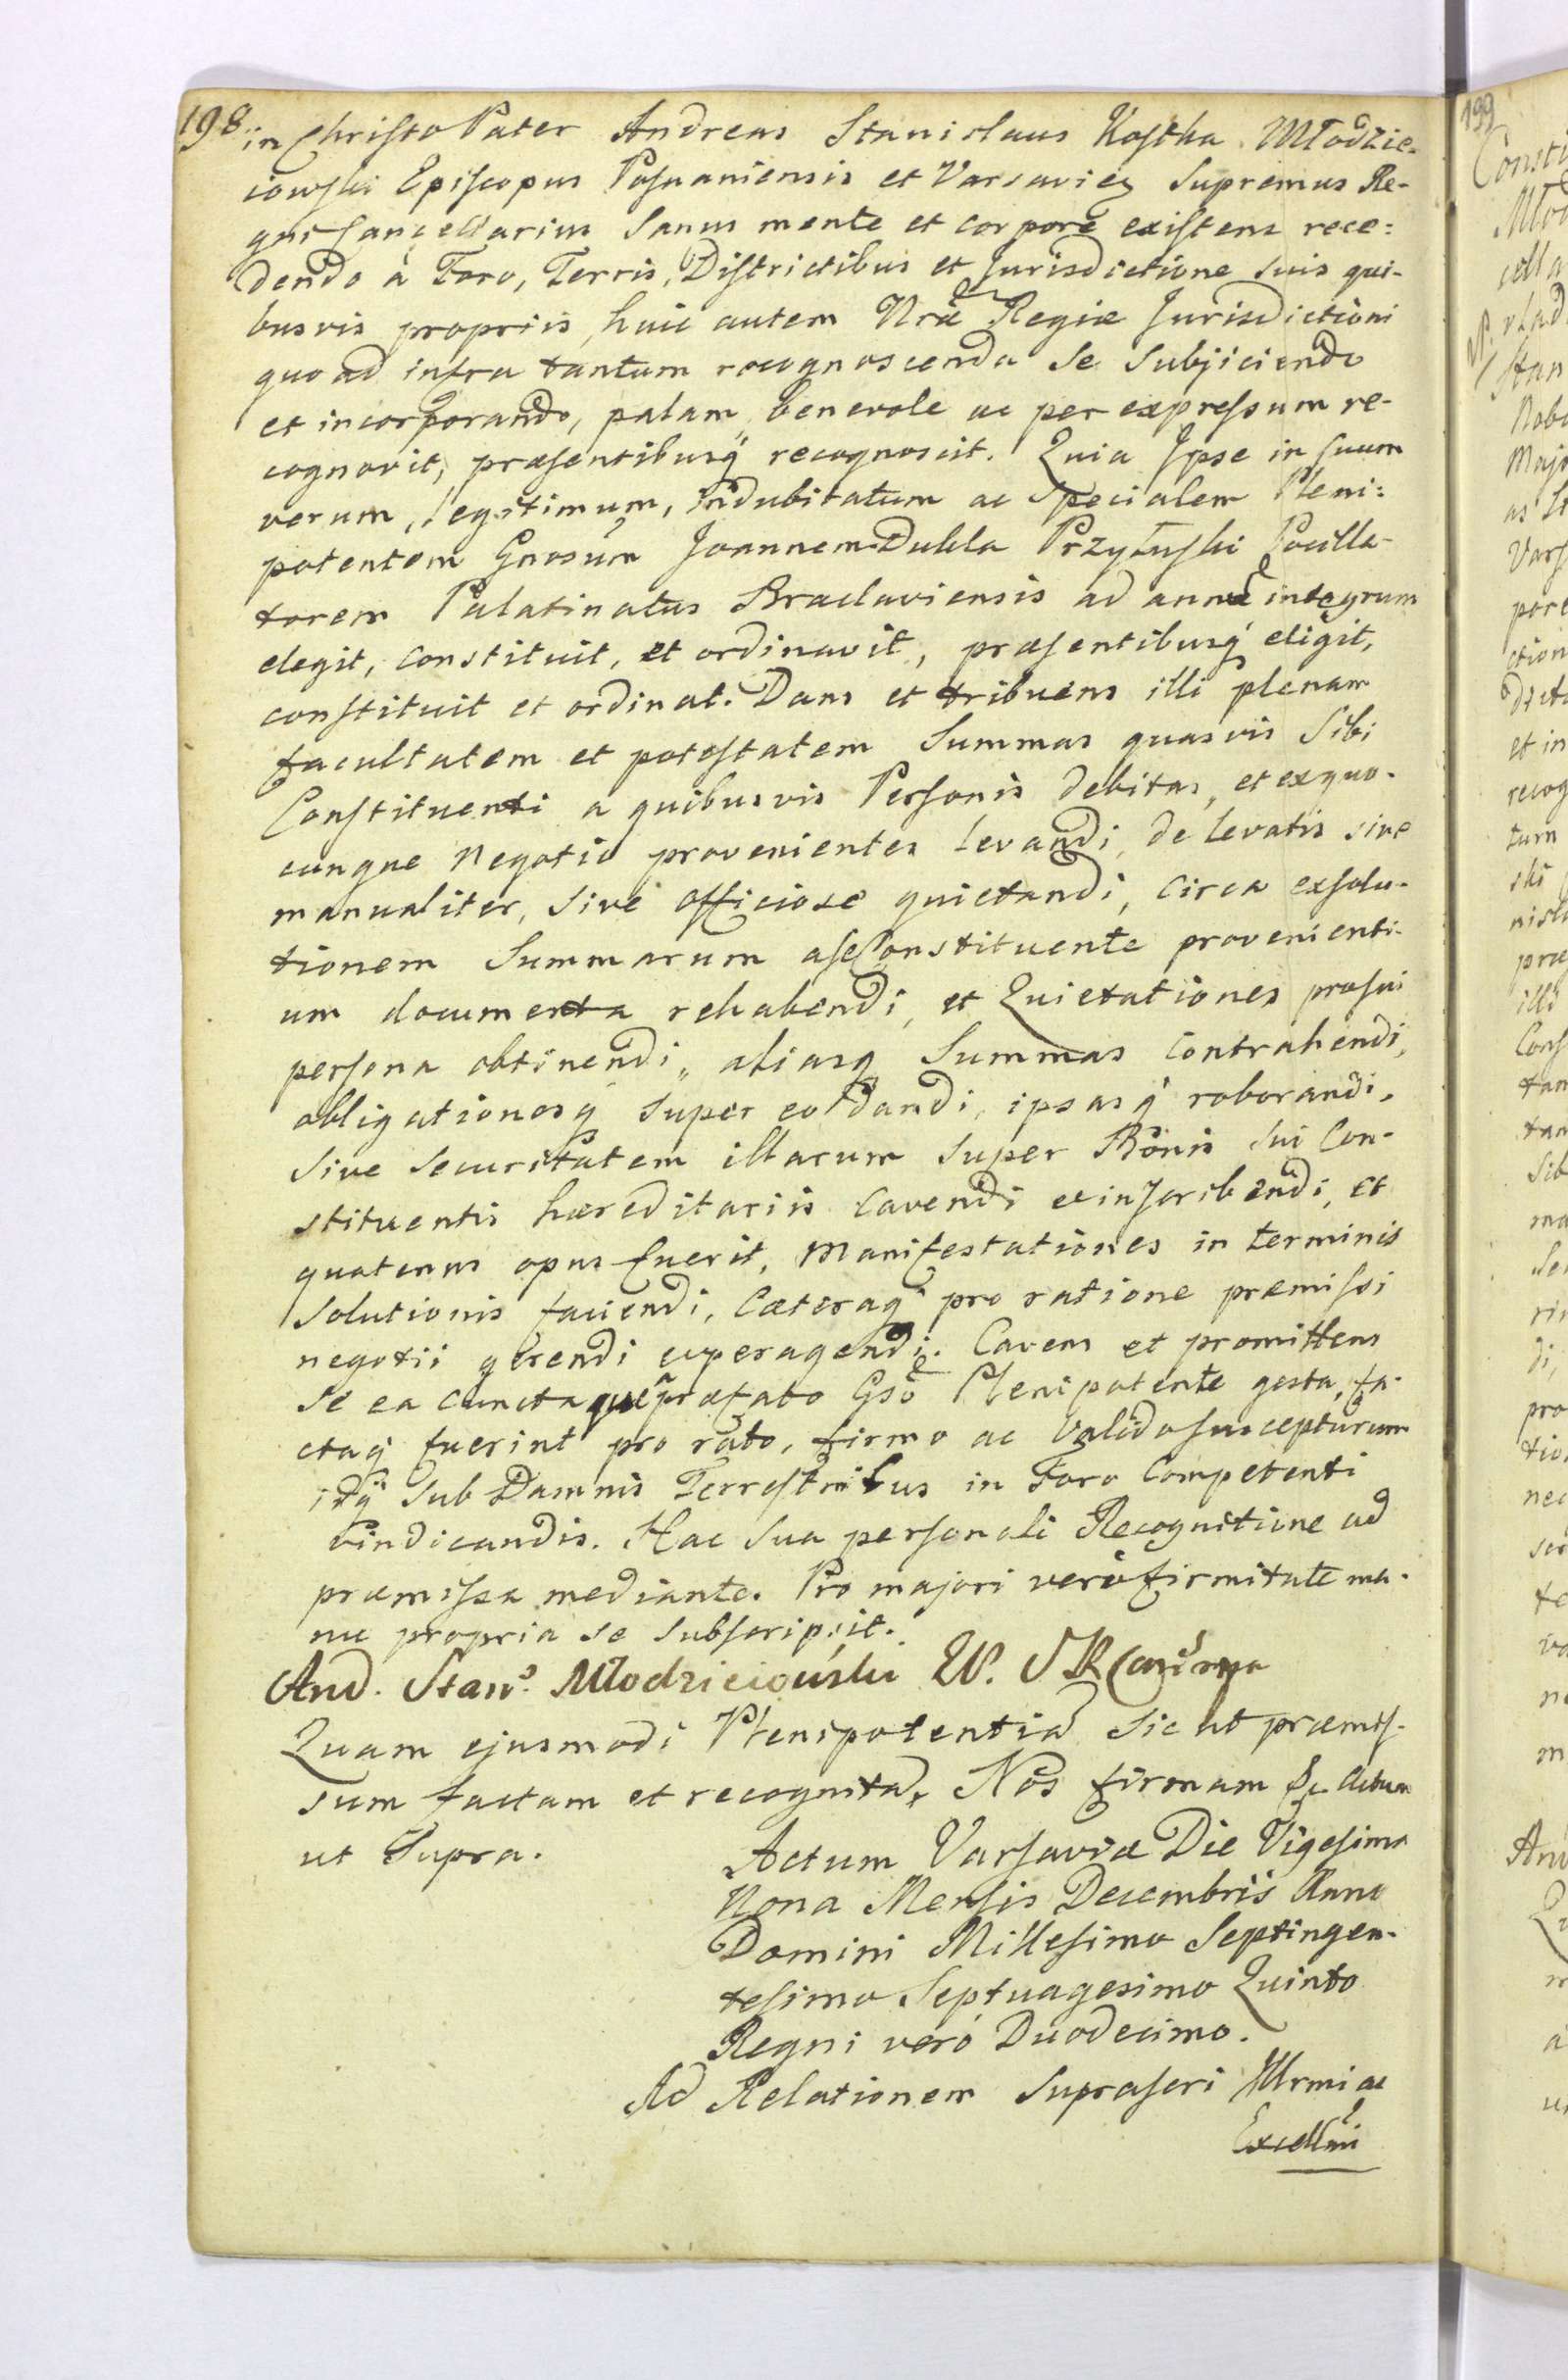 198. in Christo Pater Andreas Stanislaus Kostka Młodzie=
iowski Episcopus Posnaniensis et Varsaviey Supremus Re-
gni Cancellarius Sanus mente et corpore existens rece=
dendo à Foro, Terris, Districtibus et Jurisdictione suis qui-
busvis propriis, huic autem Nrã Regiæ Jurisdictioni
quo ad infra tantum recognoscenda se subjiciendo
et incorporando, palam, benevole ac per expressum re-
cognovit, præsentibusq́ recognoscit. Quia Ipse in suum
verum, legitimum, indubitatum ac Specialem Pleni=
potentem Gnosum Joannem Dukla Przyłuski Pocilla-
torem Palatinatus Braclaviensis ad annũ integrum
elegit, constituit, et ordinavit, præsentibusq́ eligit,
constituit et ordinat. Dans et tribuens illi plenam
facultatem et potestatem Summas quasvis Sibi
Constituenti a quibusvis Personis debitas, et exquo-
cunque negotio provenientes levandi, de levatis sive
manualiter, sive officiose quietandi, circa exsolu-
tionem Summarum a se Constituente provenienti-
um documenta rehabendi, et Quietationes pro sui
persona obtinendi, aliasq Summas contrahendi,
obligationesq super eo dandi, ipsasq́ roborandi,
sive securitatem illarum super Bonis sui Con-
stituentis hæreditariis cavendi et inscribendi, et
quatenus opus fuerit, manifestationes in terminis
solutionis faciendi, Cæteraq́ pro ratione præmissi
negotii gerendi et peragendi. Cavens et promittens
se ea cuncta quæ præfato Gsõ Plenipotente gesta, fa-
ctaq́ fuerint pro rato, firmo ac valido suscepturum
idq́ sub Damnis Terrestribus in Foro Competenti
vindicandis. Hac sua personali Recognitione ad
præmissa mediante. Pro majori verò firmitate ma-
nu propria se subscripsit.
And. Stan. Młodzieiowski
Quam ejusmodi Plenipotentiã sic ut præmis-
sum factam et recognitã, Nos firmam &c. Actum
ut Supra.
Actum Varsaviæ Die Vigesima
Nona Mensis Decembris Anno
Domini Millesimo Septingen-
tesimo Septuagesimo Quinto
Regni verò Duodecimo.
Ad Relationem suprascri Illrmi ac
Excellmi
199